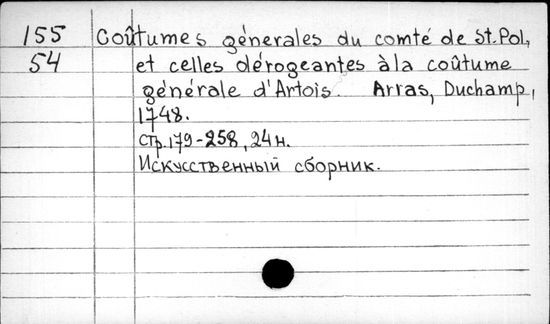 155 Coûtumes génerales du comté de St.Pol,
54 et celles dérogeantes àla coûtume
générale d'Artois. Arras, Duchamp,
1748.
стр.179-258, 24н.
Искусственный сборник.